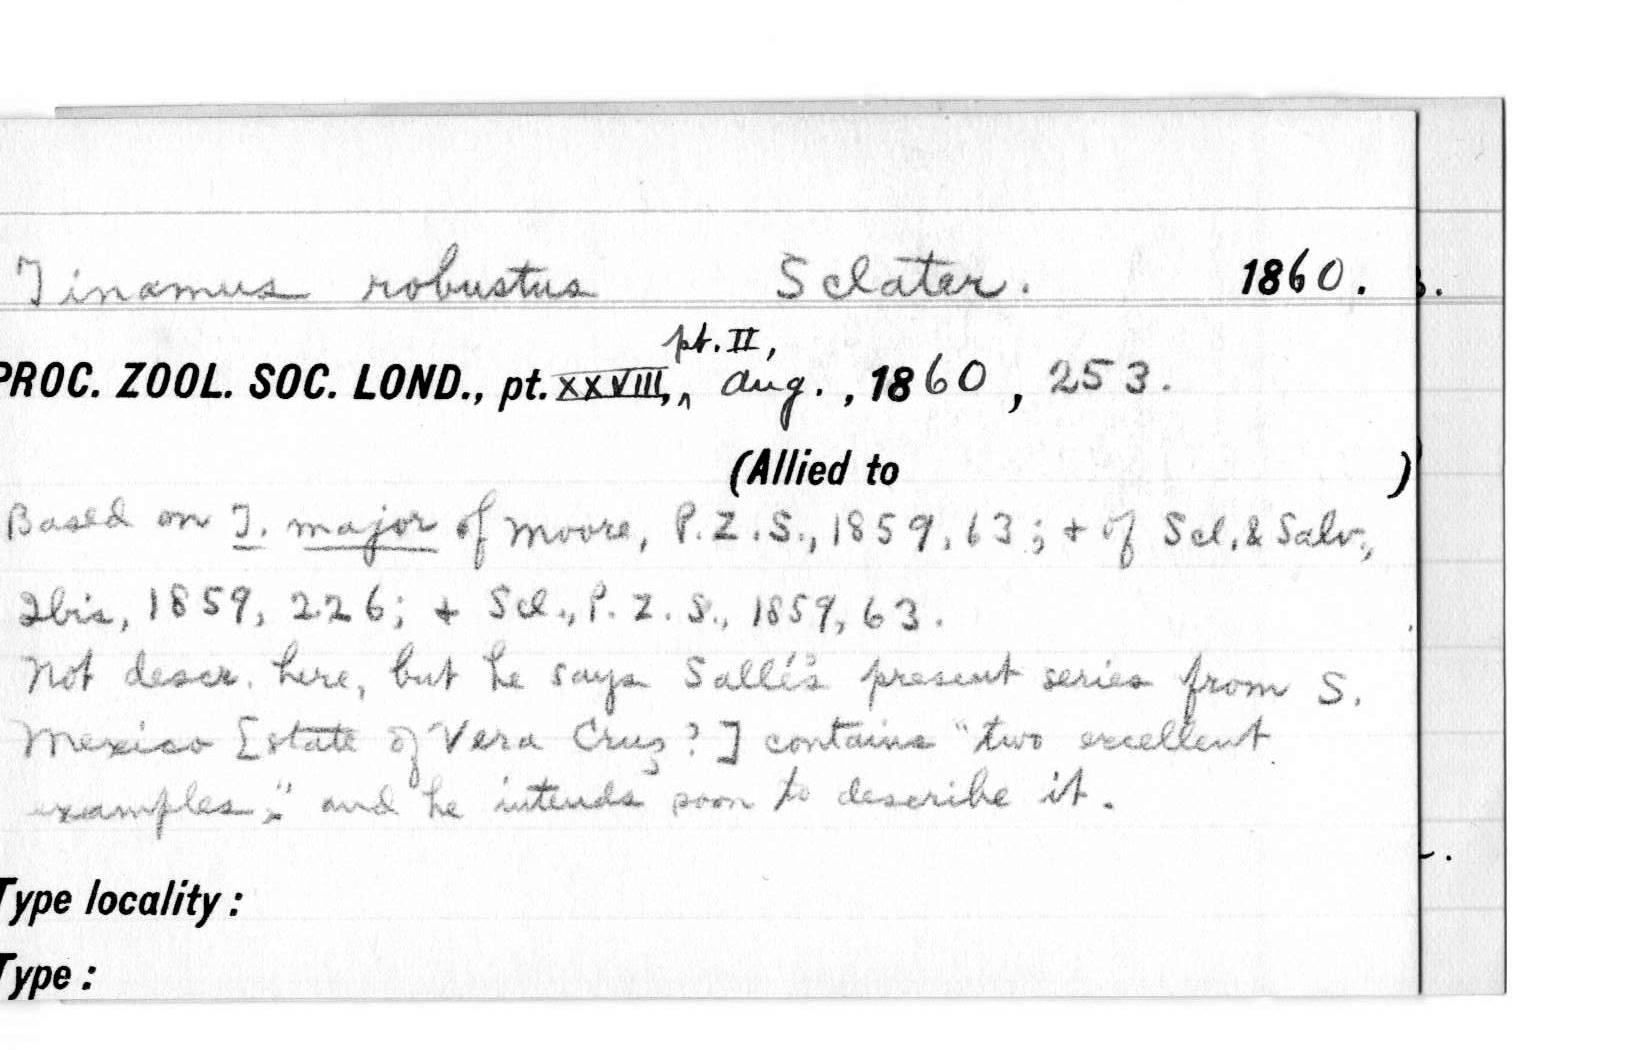 Tinamus robustus Sclater. 1860.
pt. II,
PROC. ZOOL. SOC. LOND., pt. XXVIII, ^ Aug., 1860, 253.
(Allied to )
Based on T. major of Moore, P.Z.S., 1859, 63; + of Scl. & Salv.,
Ibis, 1859, 226; + Scl., P.Z.S., 1859, 63.
Not descr. here, but he says Sallé's present series from S.
Mexico [state of Vera Cruz?] contains "two excellent
examples," and he intends soon to describe it.
Type locality:
Type: